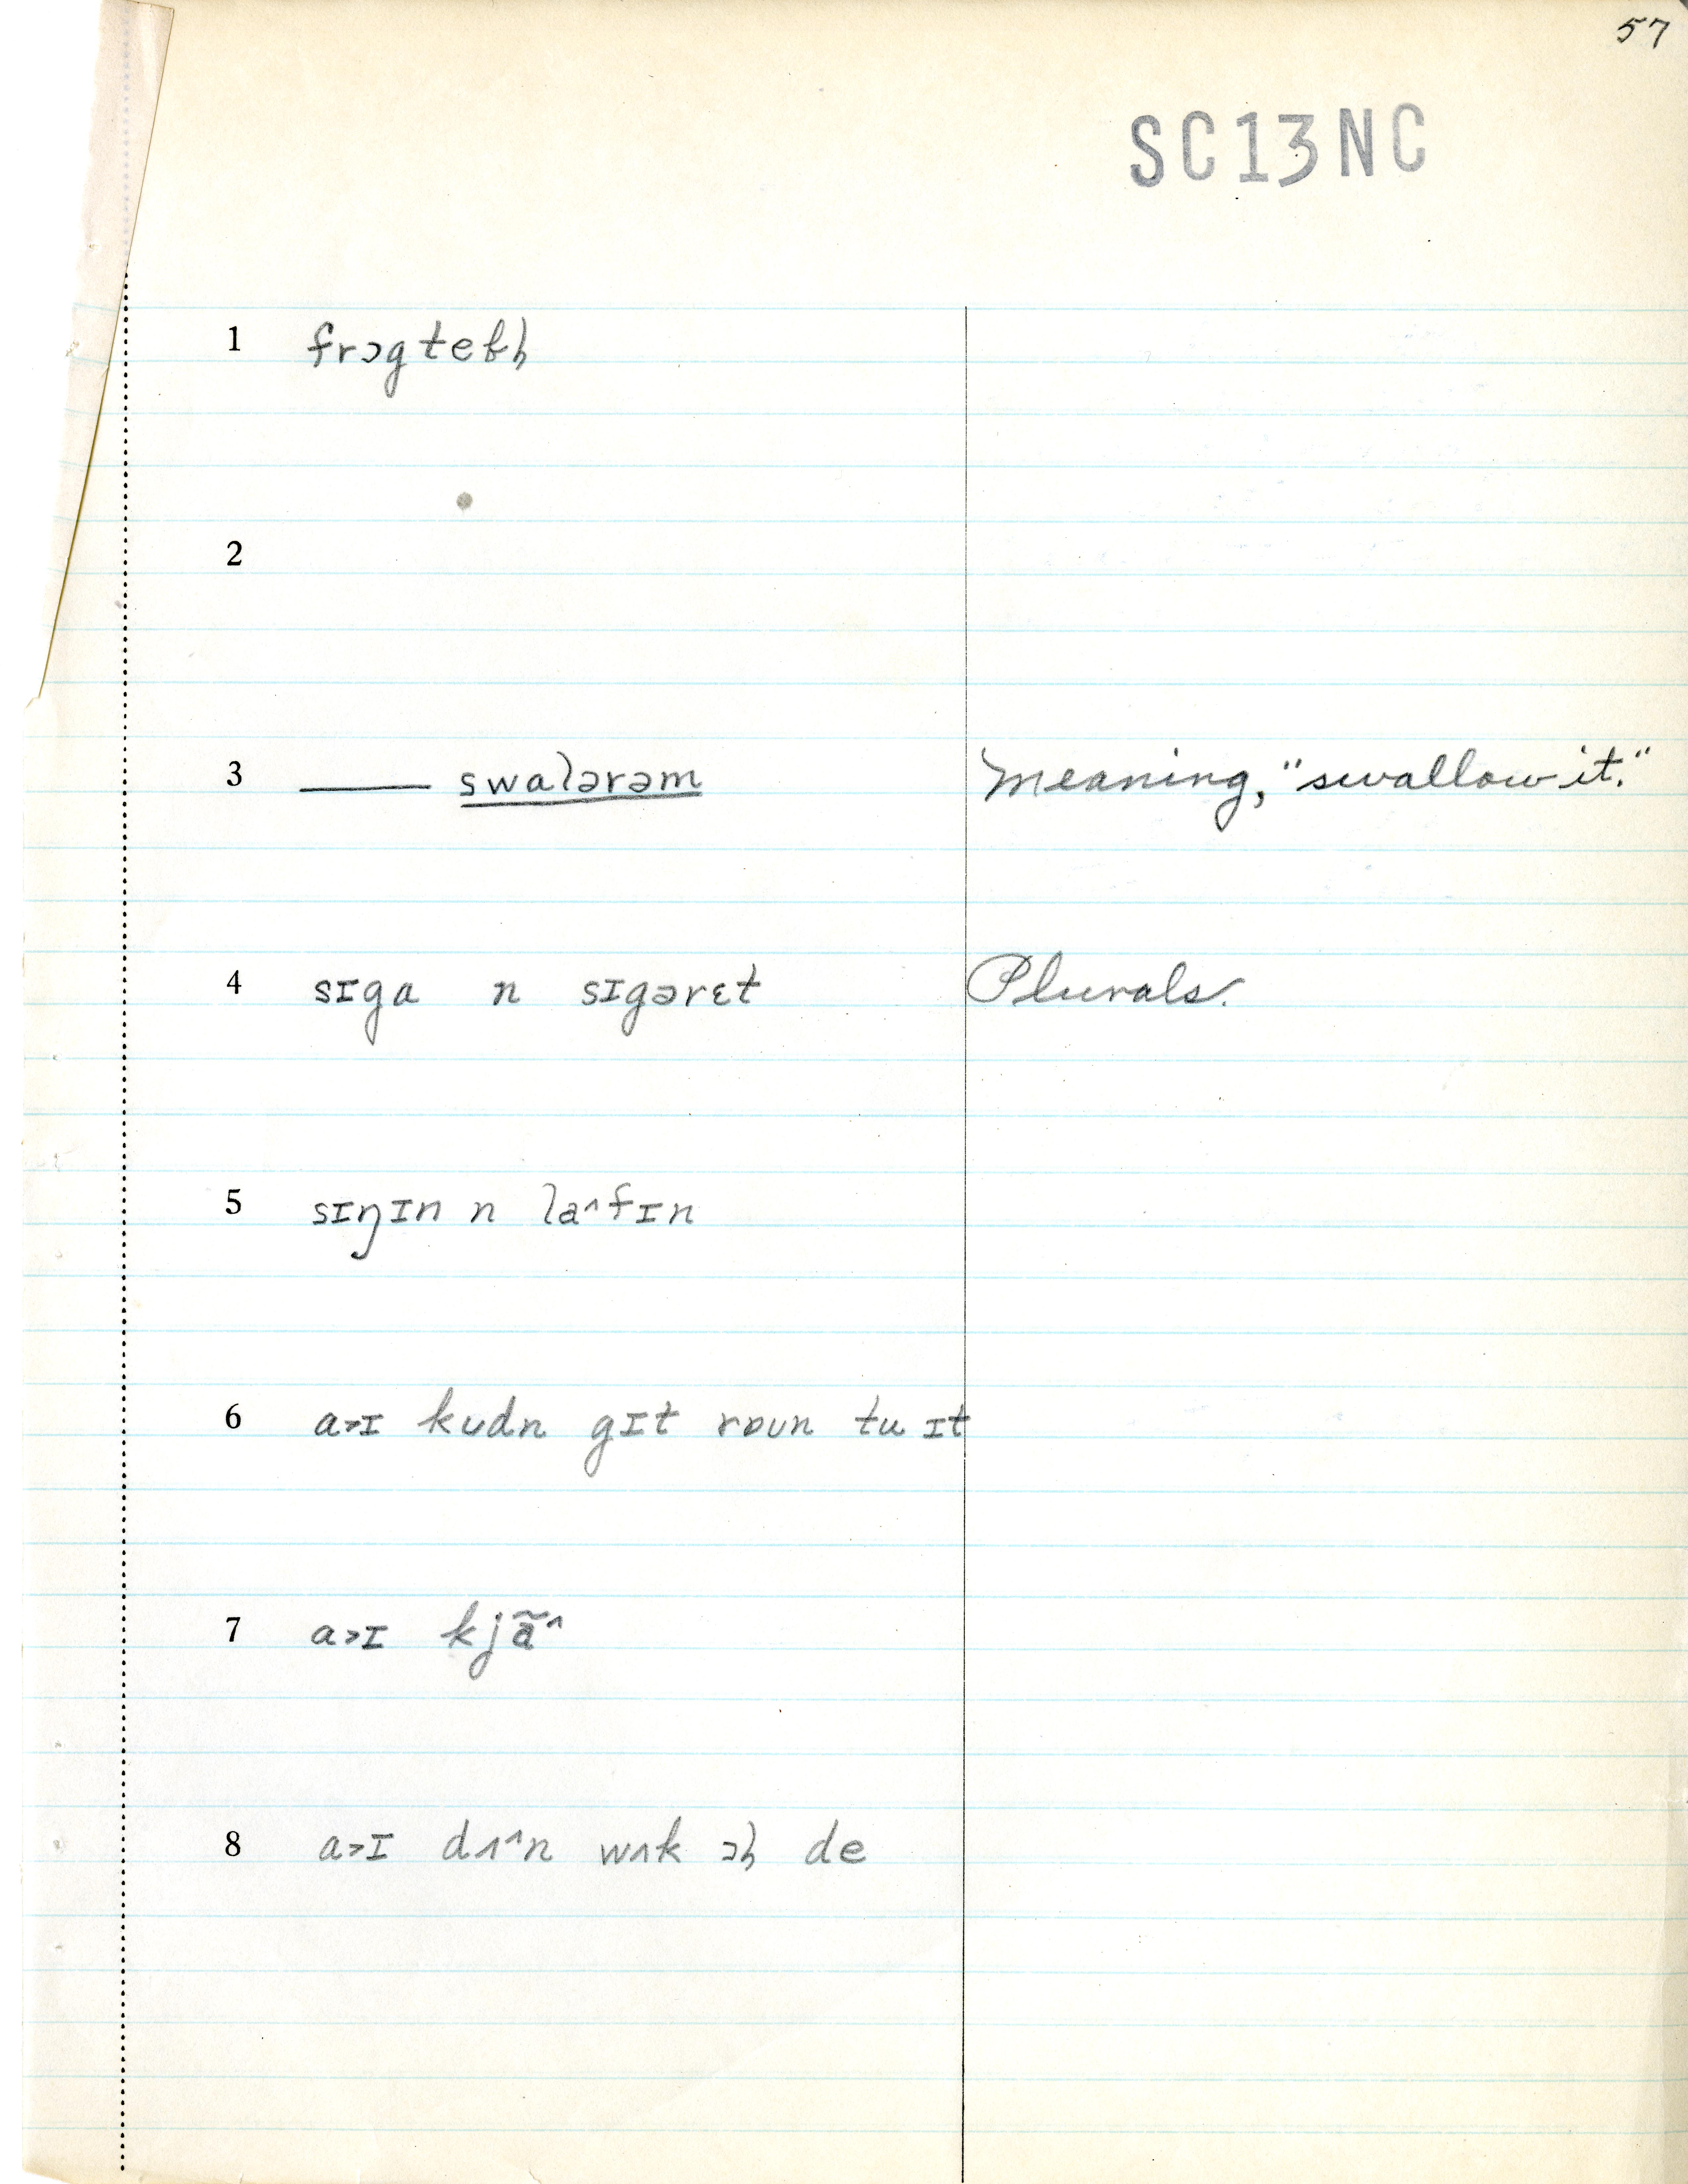 57
SC13NC
1 frɔgtebɦ
2
3 —— swalərəm Meaning, "swallow it."
4 sɪga n sɪgərɛt Plurals.
5 sɪŋɪn n la^fɪn
6 a>ɪ kʊdn gɪt rɒʊn tu ɪt
7 a>ɪ kjã^
8 a>ɪ dʌ^n wʌk ɔɦ de